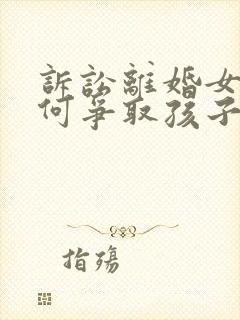 訴訟離婚女
何爭取孩子
指殤